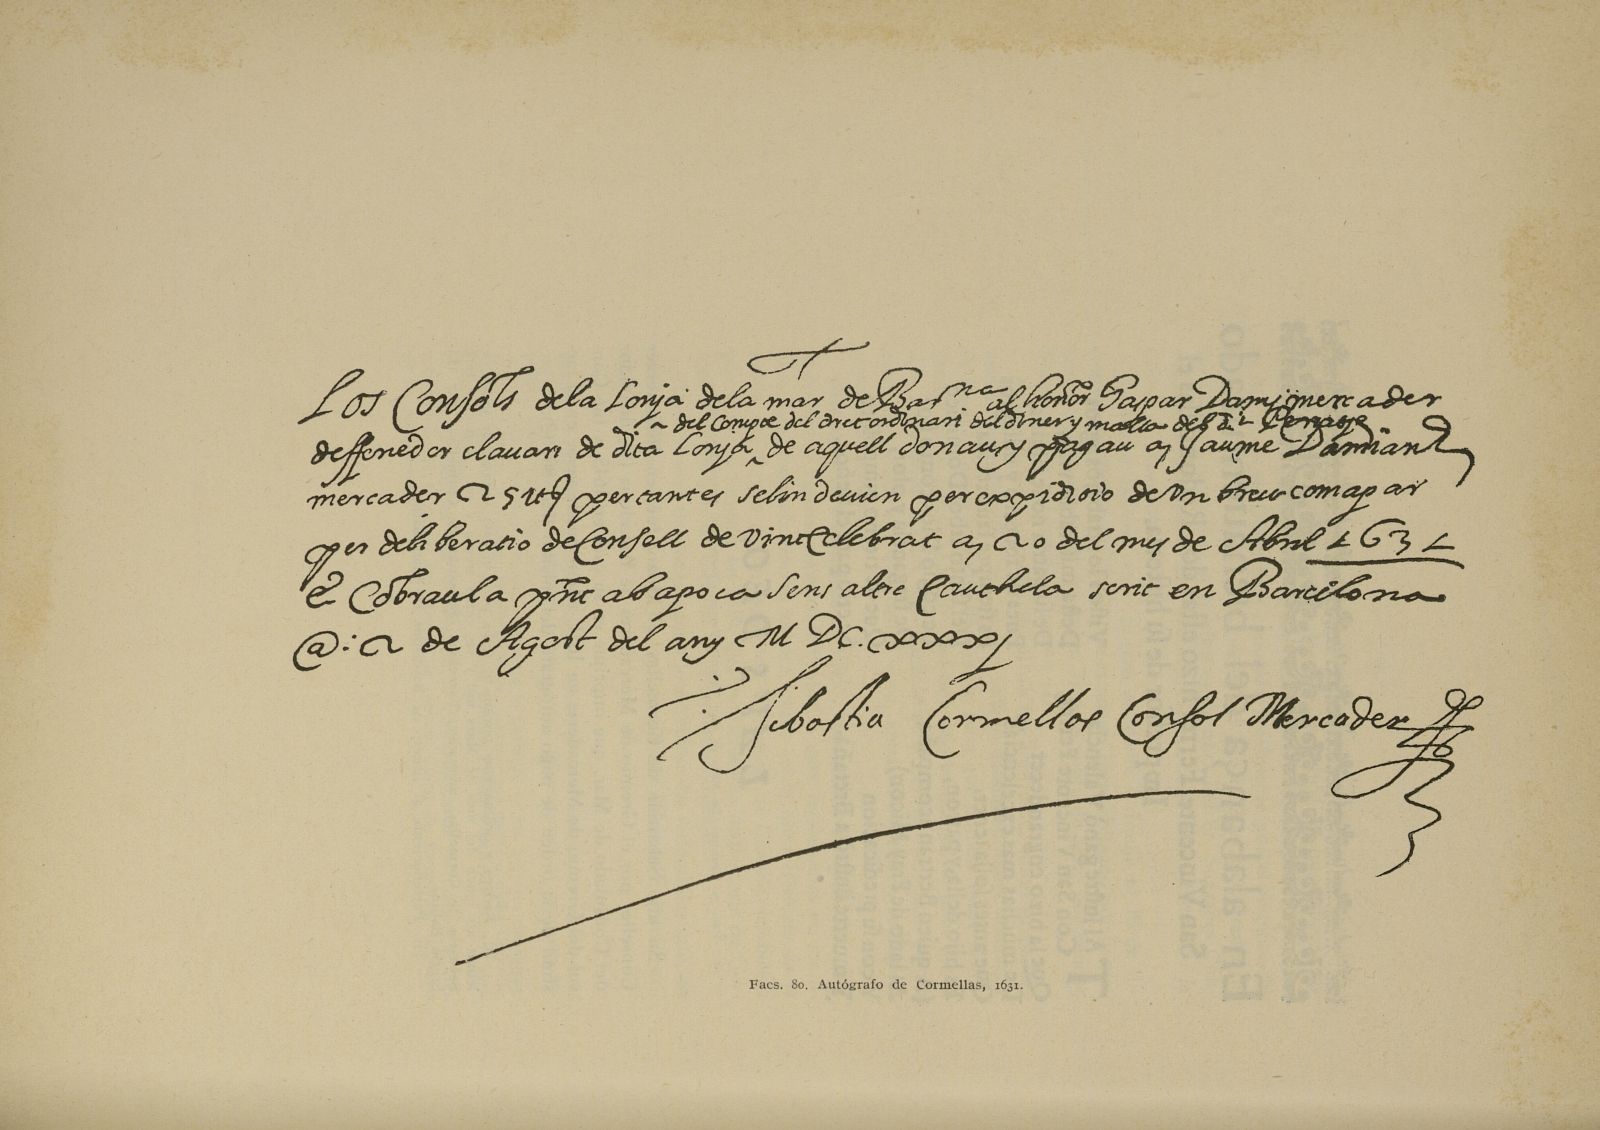 Los Consols dela Lonja dela mar de Barna al honor Gaspar Damia mercader
del Compte del dret ordinari del diner y malla del
deffenedor clauari de dita Lonja de aquell donau y pagau a Jaume Damians
mercader per tantes selin deuien per expidicio de vn breu com apar
per deliberatio de Consell de vint Celebrat a 20 del mes de Abril 1631
& Cobraula pnt ab apoca sens altre Cauthela scrit en Barcelona
@: 2 de Agost del any M DC. xxxj
Sebastia Cormellas Consol Mercader
Facs. 80. Autógrafo de Cormellas, 1631.